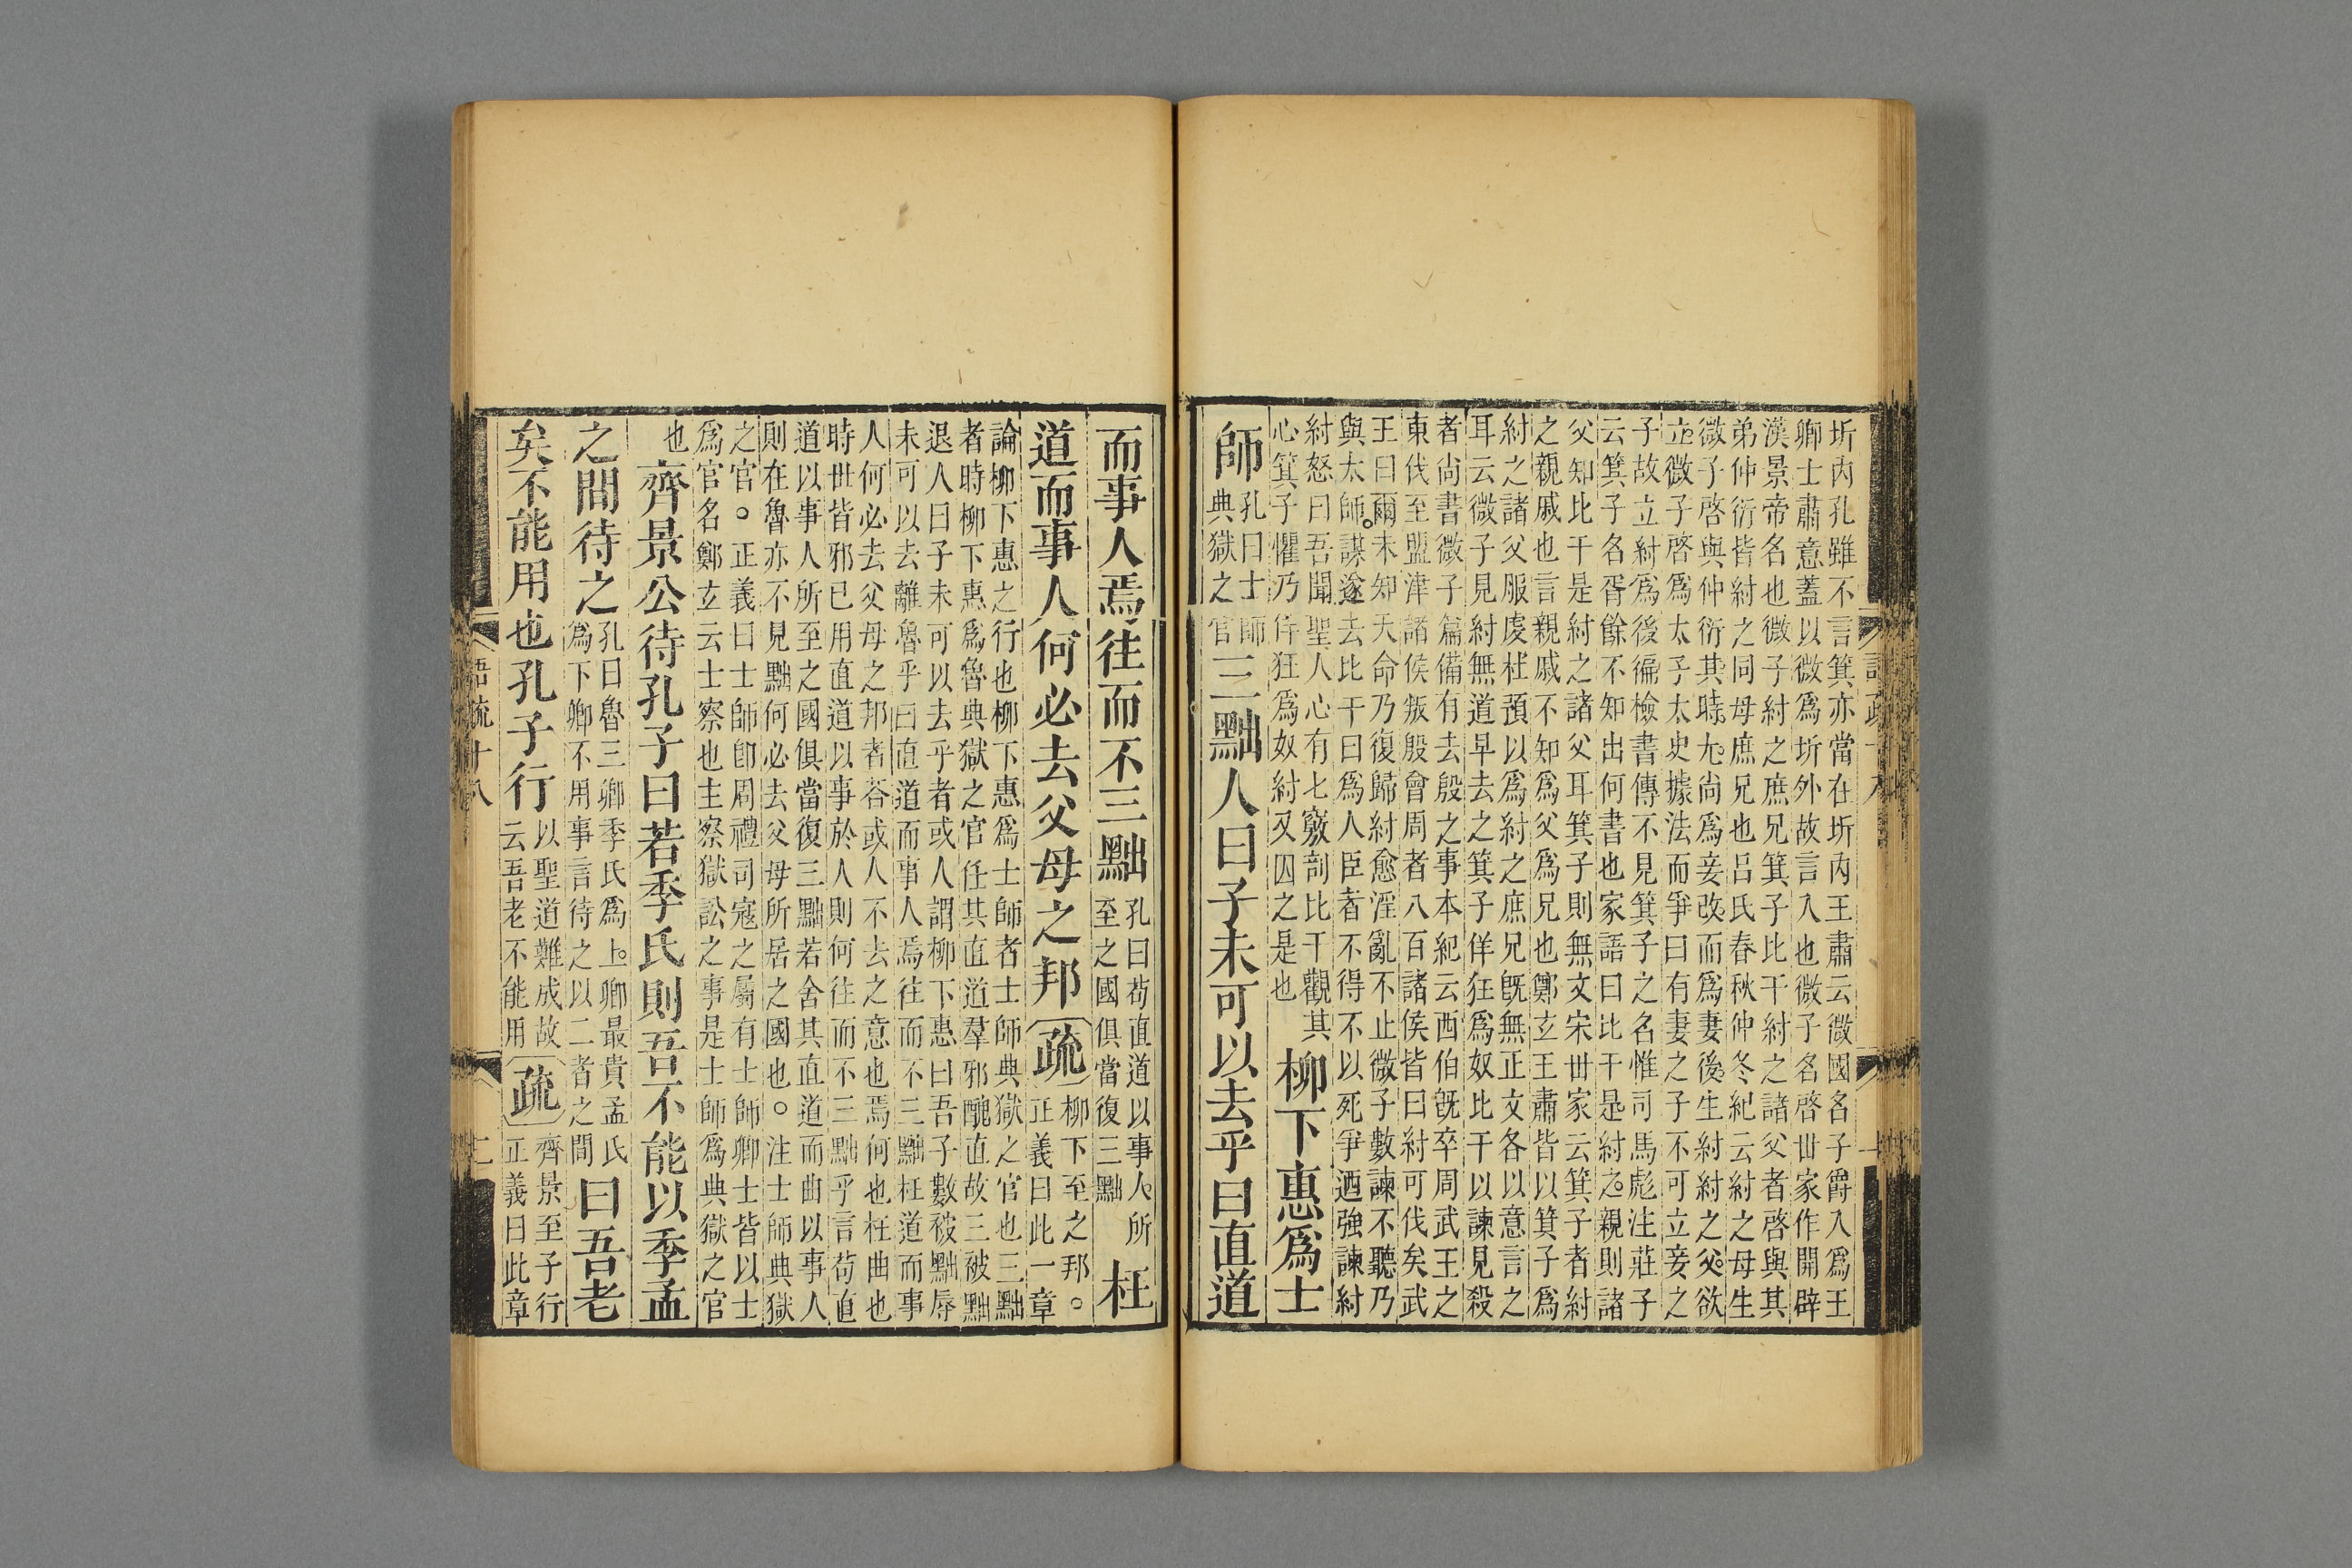 圻內孔雖不言箕亦當在圻內王肅云微國名子爵入爲王
卿士肅意蓋以微爲圻外故言入也微子名啓世家作開辟
漢景帝名也微子紂之庶兄箕子比干紂之諸父者啓與其
弟仲衍皆紂之同母庶兄也吕氏春秋仲冬紀云紂之母生
微子啓與仲衍其時尢尚爲妾改而爲妻後生紂紂之父欲
立微子啓爲太子太史據法而爭曰有妻之子不可立妾之
子故立紂爲後徧檢書傳不見箕子之名惟司馬彪注莊子
云箕子名胥餘不知出何書也家語曰比干是紂之親則諸
父知比干是紂之諸父耳箕子則無文宋世家云箕子者紂
之親戚也言親戚不知爲父爲兄也鄭玄王肅皆以箕子爲
紂之諸父服虔杜預以爲紂之庶兄旣無正文各以意言之
耳云微子見紂無道早去之箕子佯狂爲奴比干以諫見殺
者尚書微子篇備有去殷之事本紀云西伯旣卒周武王之
東伐至盟津諸侯叛殷會周者八百諸侯皆曰紂可伐矣武
王曰爾未知天命乃復歸紂愈淫亂不止微子數諫不聽乃
與太師謀遂去比干曰爲人臣者不得不以死爭迺強諫紂
紂怒曰吾聞聖人心有七竅剖比干觀其
心箕子懼乃佯狂爲奴紂又囚之是也
柳下惠爲士
師
孔曰士師
典獄之官
三黜人曰子未可以去乎曰直道
而事人焉往而不三黜
孔曰苟直道以事人所
至之國俱當復三黜
枉
道而事人何必去父母之邦
疏
柳下至之邦。
正義曰此一章
論柳下惠之行也柳下惠爲士師者士師典獄之官也三黜
者時柳下惠爲魯典獄之官任其直道羣邪醜直故三被黜
退人曰子未可以去乎者或人謂柳下惠曰吾子數被黜辱
未可以去離魯乎曰直道而事人焉往而不三黜枉道而事
人何必去父母之邦者荅或人不去之意也焉何也枉曲也
時世皆邪已用直道以事於人則何往而不三黜乎言苟直
道以事人所至之國俱當復三黜若舍其直道而曲以事人
則在魯亦不見黜何必去父母所居之國也。注士師典獄
之官。正義曰士師卽周禮司寇之屬有士師卿士皆以士
爲官名鄭玄云士察也主察獄訟之事是士師爲典獄之官
也
齊景公待孔子曰若季氏則吾不能以季孟
之間待之
孔曰魯三卿季氏爲上卿最貴孟氏
爲下卿不用事言待之以二者之間
曰吾老
矣不能用也孔子行
以聖道難成故
云吾老不能用
疏
齊景至子行
正義曰此章
語疏十八
二